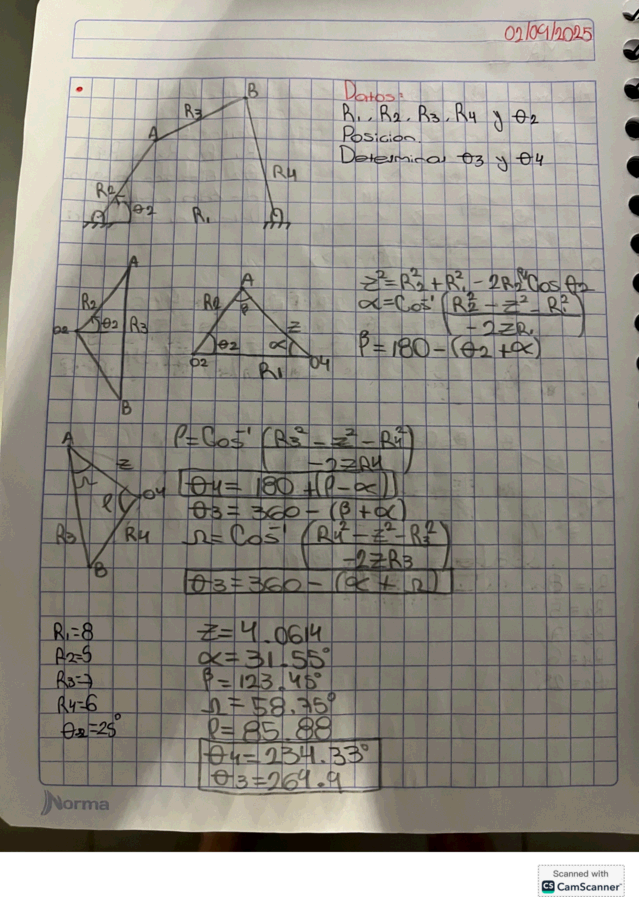 02/09/2025
Datos:
R1, R2, R3, R4 y θ2
Posicion.
Determinar θ3 y θ4
B
R3
A
R4
R2
θ2
R1
A
R2
O2
θ2
R3
B
A
R2
β
z
O2
θ2
α
O4
R1
z² = R2² + R1² - 2R2R1 Cos θ2
α = Cos⁻¹ (R2² - z² - R1² / -2zR1)
β = 180 - (θ2 + α)
A
z
Ω
ρ
O4
R3
R4
B
ρ = Cos⁻¹ (R3² - z² - R4² / -2zR4)
θ4 = 180 + (ρ - α)
θ3 = 360 - (β + α)
Ω = Cos⁻¹ (R4² - z² - R3² / -2zR3)
θ3 = 360 - (α + Ω)
R1 = 8
R2 = 5
R3 = 7
R4 = 6
θ2 = 25°
z = 4.0614
α = 31.55°
β = 123.45°
Ω = 58.75°
ρ = 85.88
θ4 = 234.33°
θ3 = 269.9
Norma
Scanned with
CS CamScanner